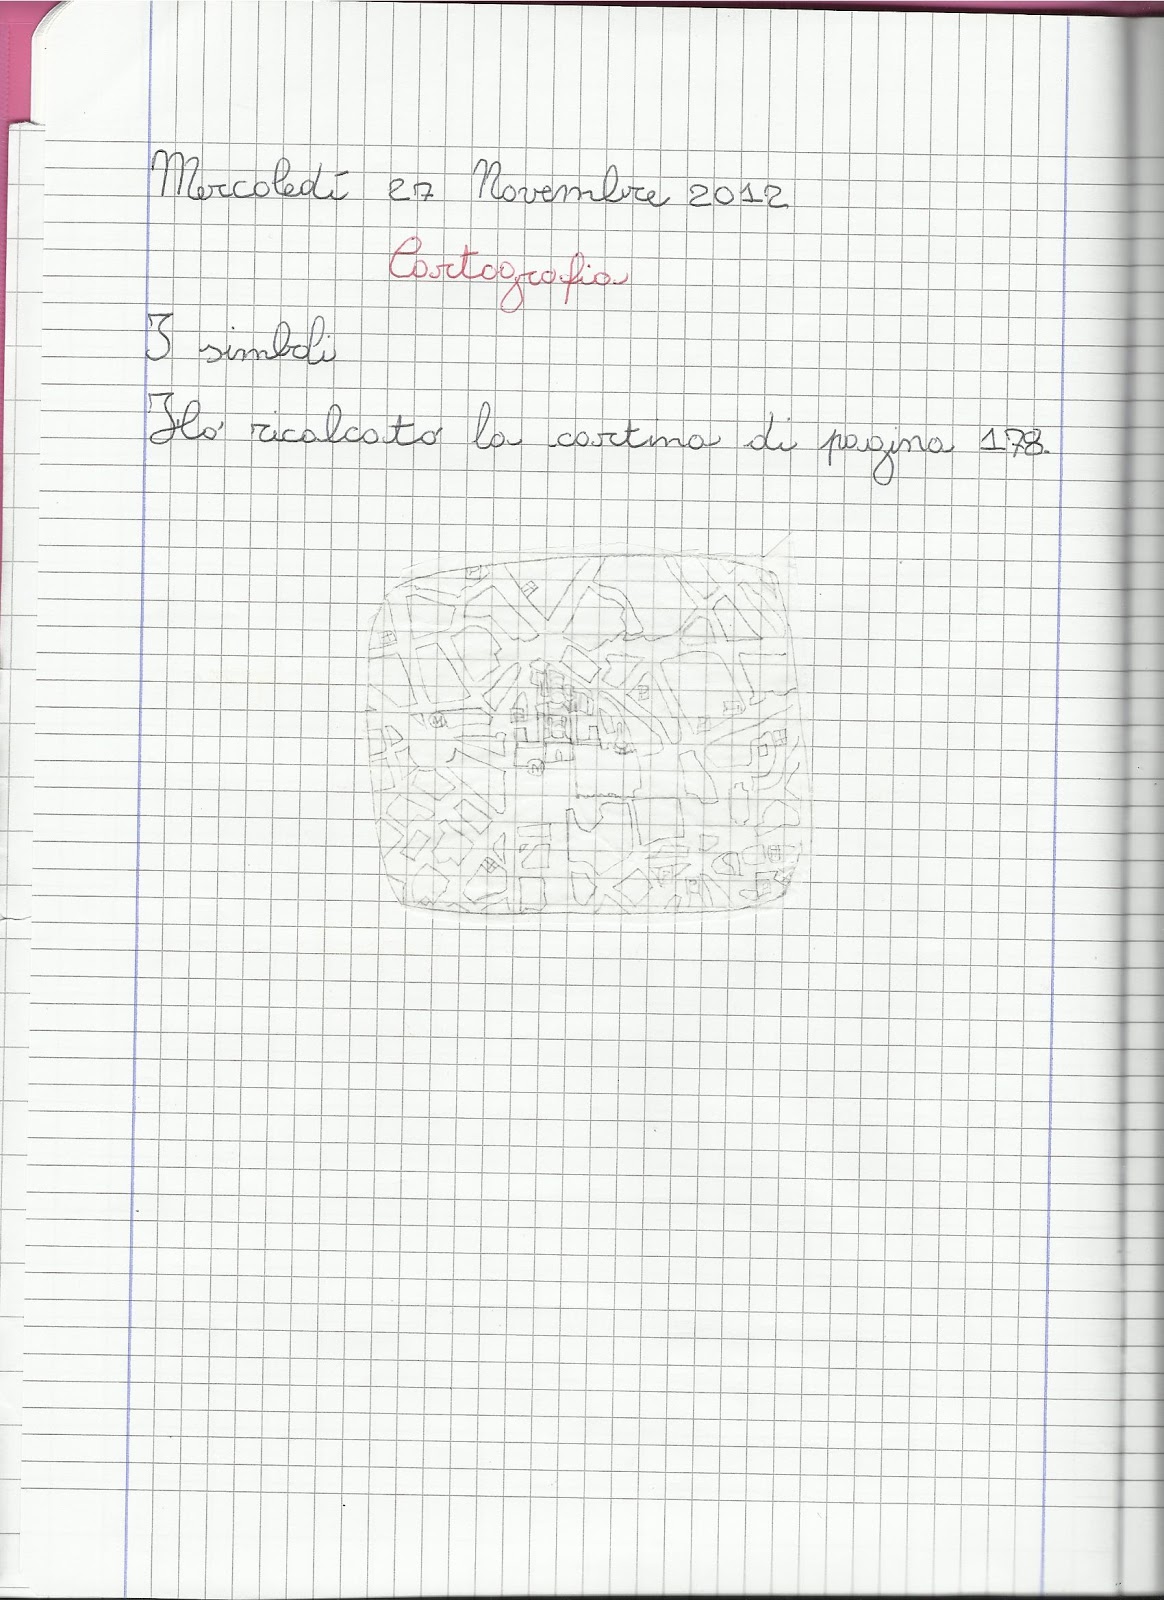 Mercoledí 27 Novembre 2012
Cartografia
I simboli
Hó ricalcato la cartina di pagina 178.